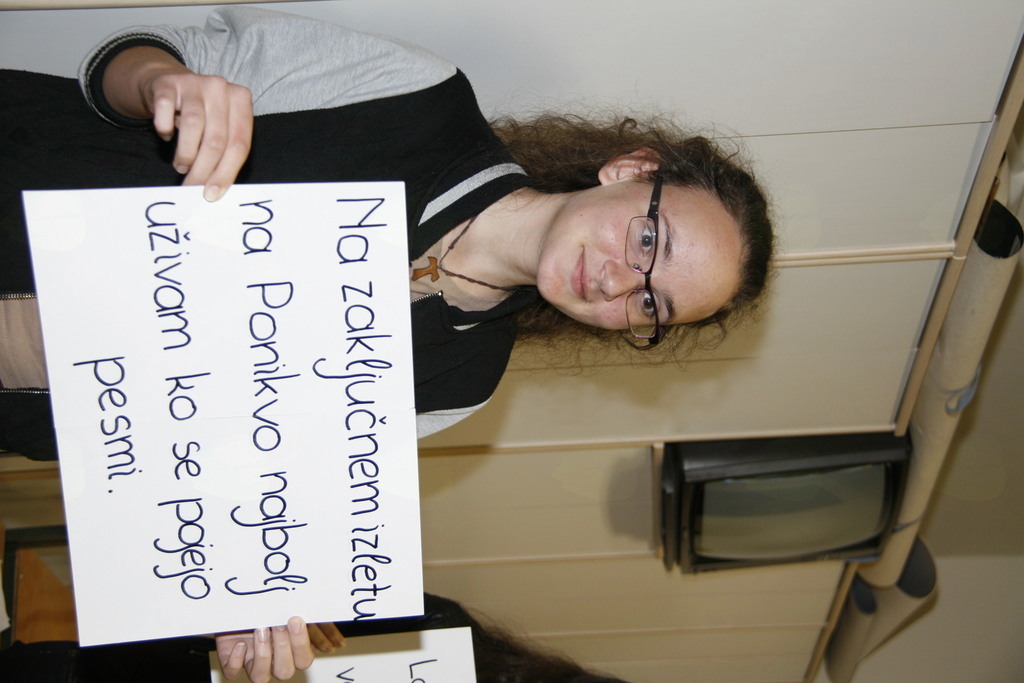 Na zaključnem izletu
na Ponikvo najbolj
uživam ko se pojejo
pesmi.